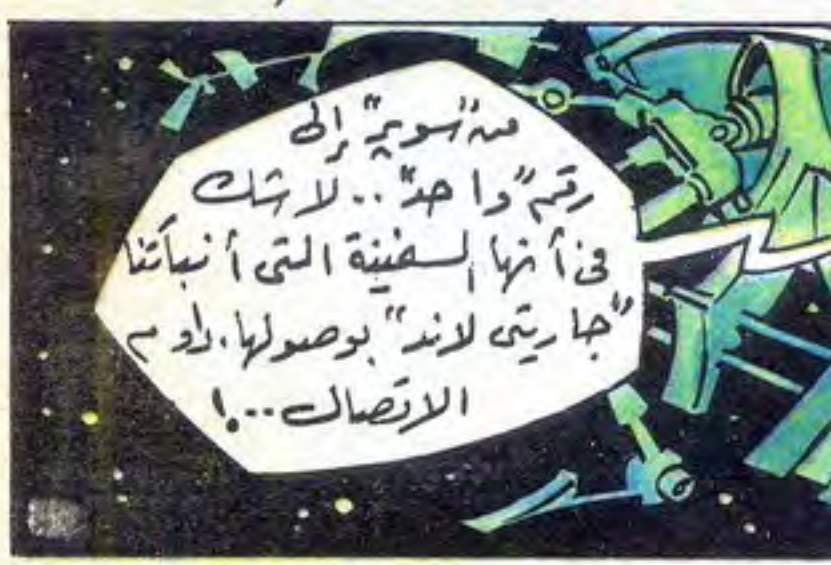 من "سوبر" إلى
رقم "واحد".. لا شك
فى أنها السفينة التى أنبأتنا
"جاريتى لاند" بوصولها. داوم
الاتصال...!